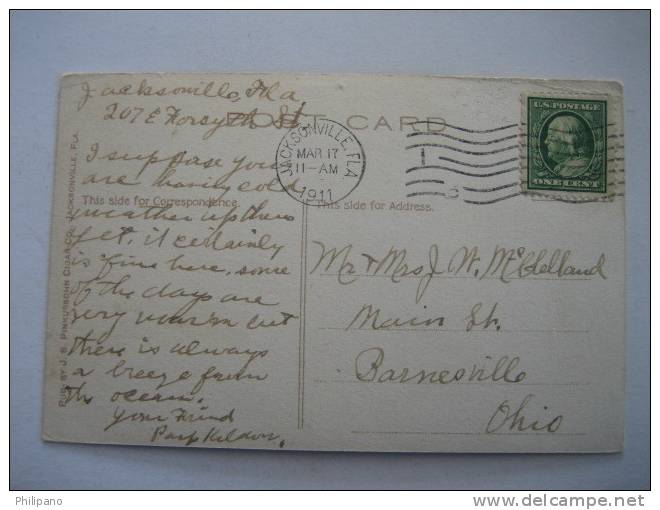 Jacksonville, Fla
207 E Forsyth St
POST CARD
I suppose you
are having cold
This side for Correspondence.
weather up there
yet, it certainly
is fine here, some
of the days are
very warm but
there is always
a breeze from
the ocean.
Your Friend
PUB. BY J. S. PINKUSSOHN CIGAR CO., JACKSONVILLE, FLA.
JACKSONVILLE, FLA.
MAR 17
11-AM
1911
1
U.S. POSTAGE
ONE CENT
This side for Address.
Mr & Mrs J. W. McClelland
Main St.
Barnesville
Ohio
Philipano
www.delcampe.net